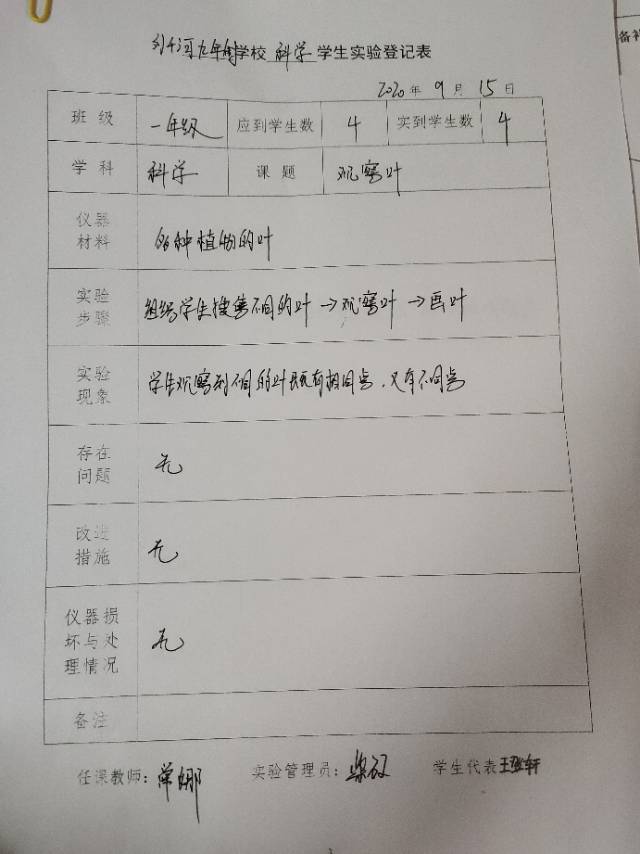 河九年制学校 科学 学生实验登记表
2020年9月15日
班级 一年级 应到学生数 4 实到学生数 4
学科 科学 课题 观察叶
仪器
材料
各种植物的叶
实验
步骤
组织学生搜集不同的叶→观察叶→画叶
实验
现象
学生观察到不同的叶既有相同点,又有不同点
存在
问题
无
改进
措施
无
仪器损
坏与处
理情况
无
备注
任课教师: 单娜 实验管理员: 学生代表 王
备补